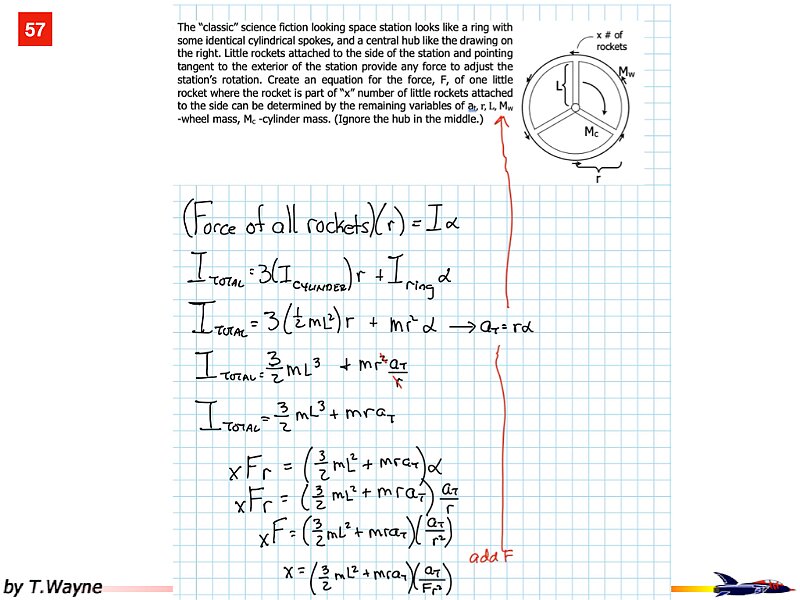 57
The “classic” science fiction looking space station looks like a ring with
some identical cylindrical spokes, and a central hub like the drawing on
the right. Little rockets attached to the side of the station and pointing
tangent to the exterior of the station provide any force to adjust the
station’s rotation. Create an equation for the force, F, of one little
rocket where the rocket is part of “x” number of little rockets attached
to the side can be determined by the remaining variables of aₜ, r, L, Mw
-wheel mass, Mc -cylinder mass. (Ignore the hub in the middle.)
x # of
rockets
Mw
L
Mc
r
(Force of all rockets)(r) = Iα
I TOTAL = 3(I CYLINDER)r + I ring α
I TOTAL = 3(1/2 mL²)r + mr² α → aT = rα
I TOTAL = 3/2 mL³ + mr² aT/r
I TOTAL = 3/2 mL³ + mraT
xFr = (3/2 mL² + mraT)α
xFr = (3/2 mL² + mraT) aT/r
xF = (3/2 mL² + mraT)(aT/r²)
add F
x = (3/2 mL² + mraT)(aT/Fr²)
by T.Wayne